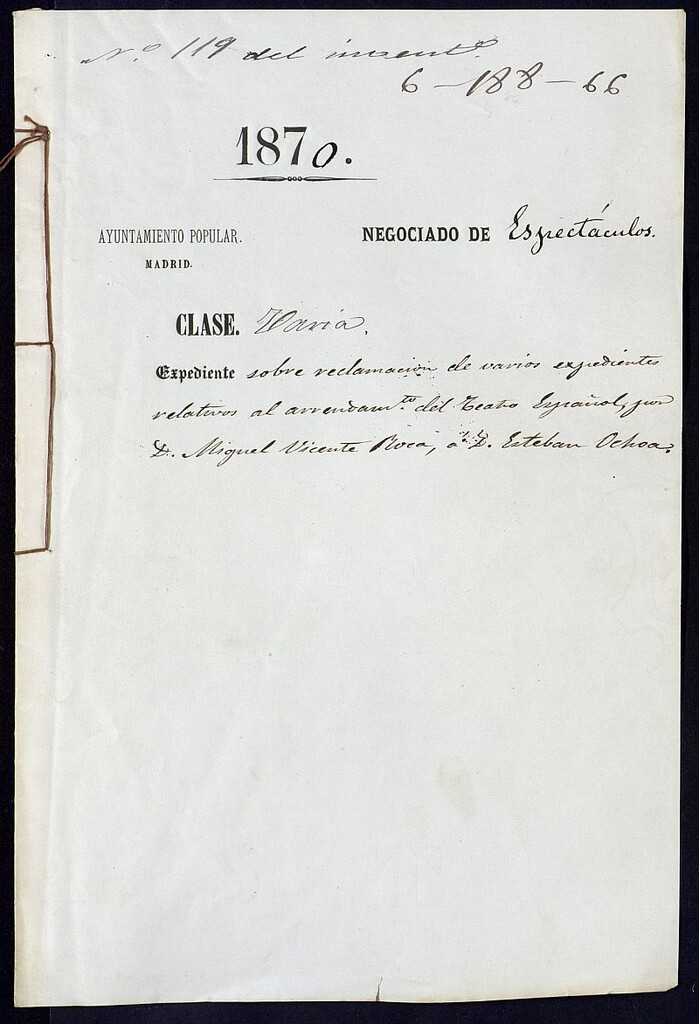 Nº 119 del invent.º
6-188-66
1870.
AYUNTAMIENTO POPULAR.
MADRID.
NEGOCIADO DE Espectáculos.
CLASE. Varia.
Expediente sobre reclamacion de varios expedientes
relativos al arrendam.to del Teatro Español, por
D. Miguel Vicente Roca, á D. Esteban Ochoa.